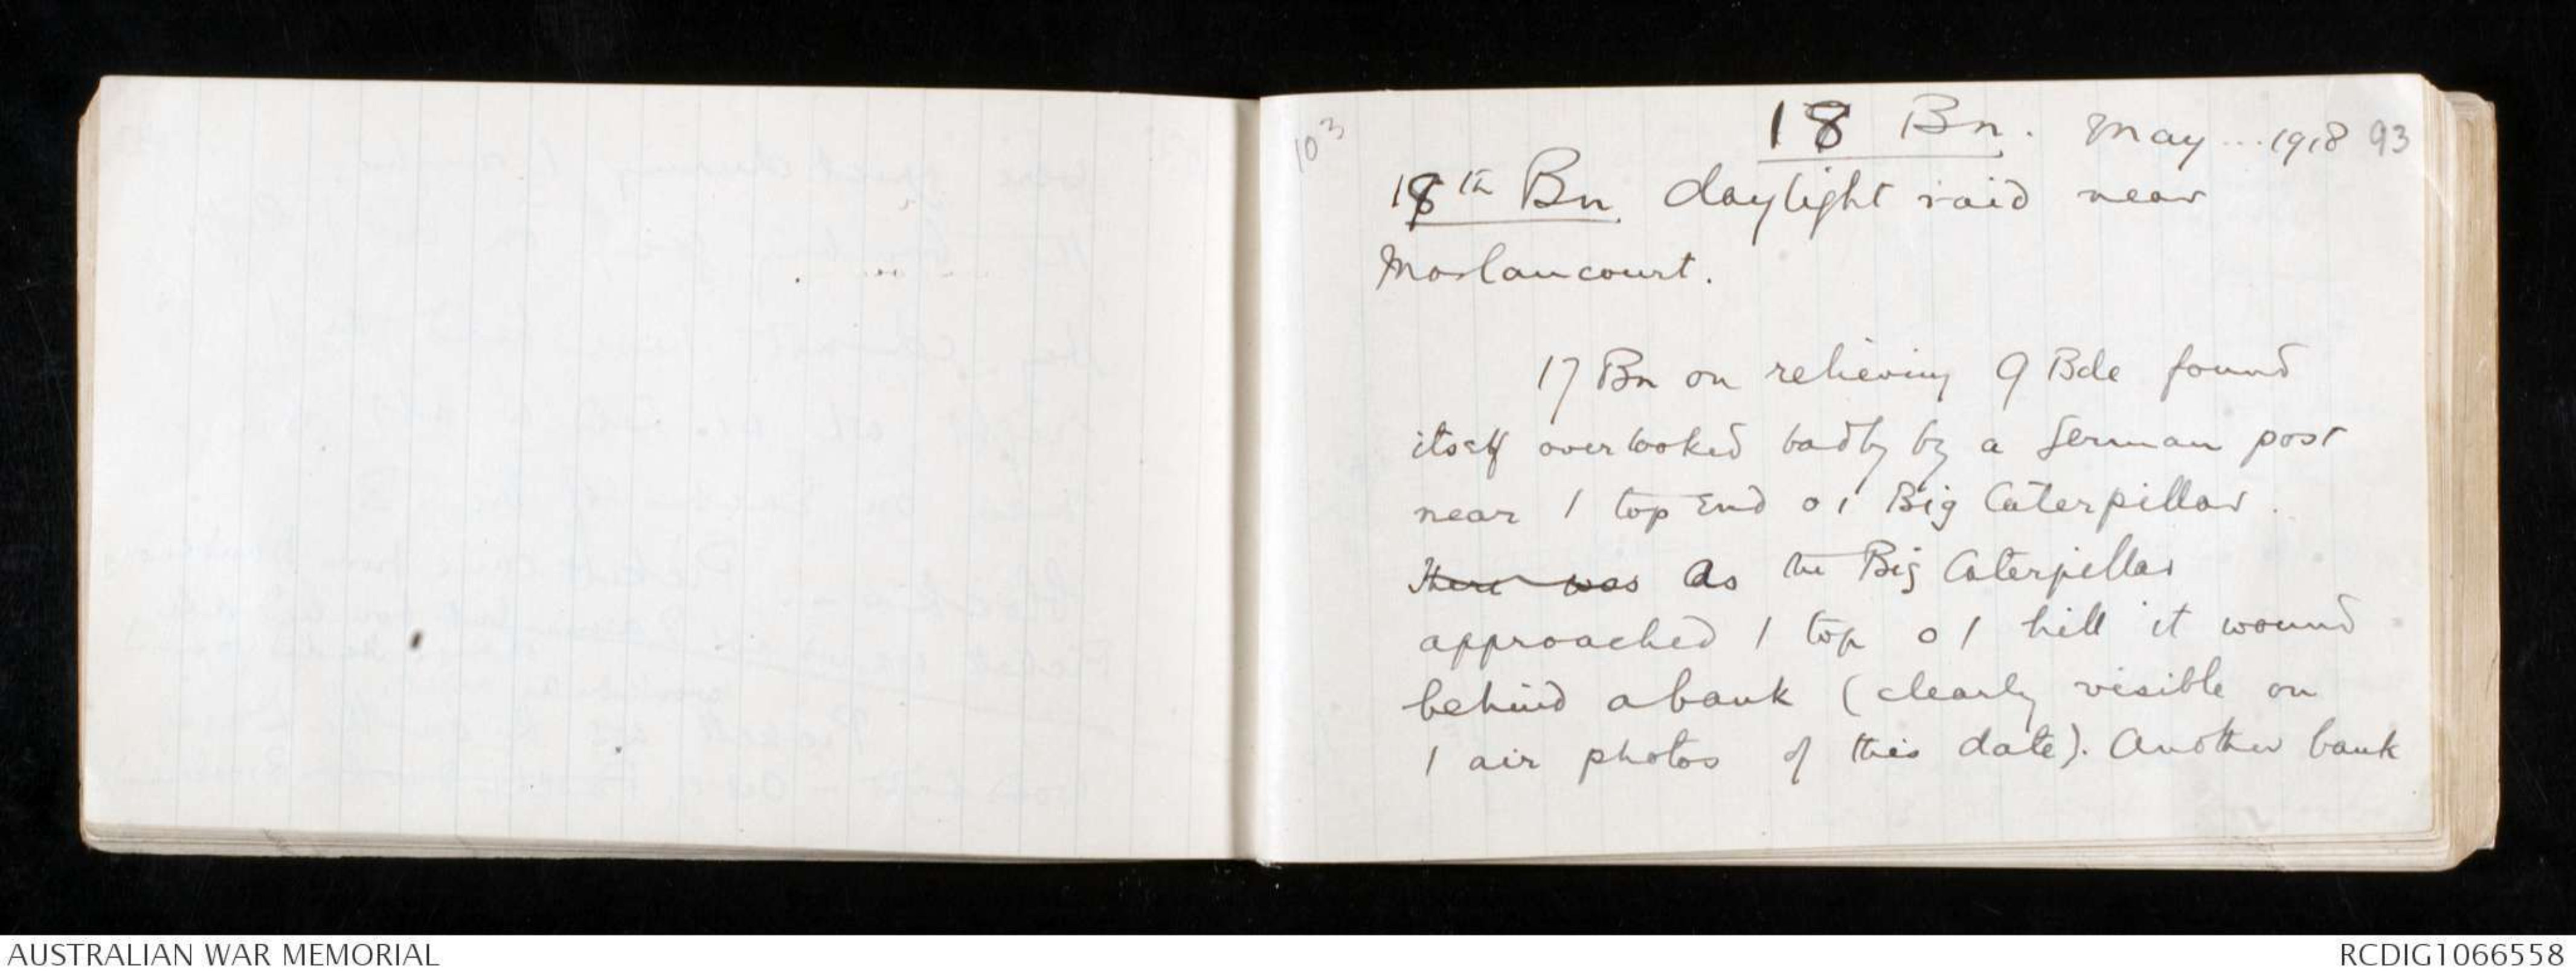 103
18 Bn. May ... 1918 93
18th Bn. daylight raid near
Morlancourt.
17 Bn on relieving 9 Bde found
itself overlooked badly by a German post
near / top end o / Big Caterpillar.
There was As the Big Caterpillar
approached / top o / hill it wound
behind a bank (clearly visible on
/ air photos of this date). Another bank
AUSTRALIAN WAR MEMORIAL
RCDIG1066558